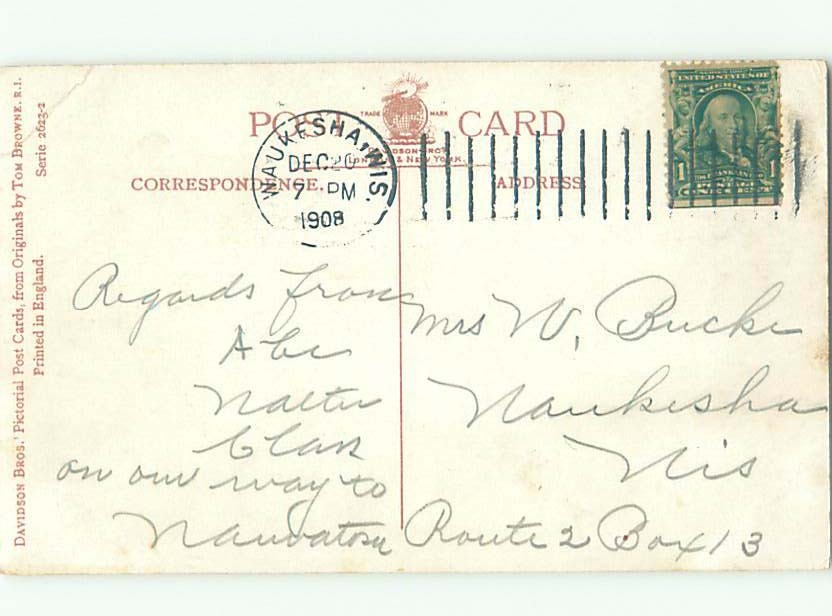 DAVIDSON BROS.' Pictorial Post Cards, from Originals by TOM BROWNE, R.I.
Serie 2623-2
Printed in England.
POST CARD
TRADE MARK
& NEW YORK
CORRESPONDENCE.
ADDRESS
WAUKESHA, WIS.
DEC 20
7 - PM
1908
UNITED STATES OF
AMERICA
1 1
Regards from
Abe
Walter
Clark
on our way to
Wauwatosa
Mrs W. Bucke
Waukesha
Wis
Route 2 Box 13